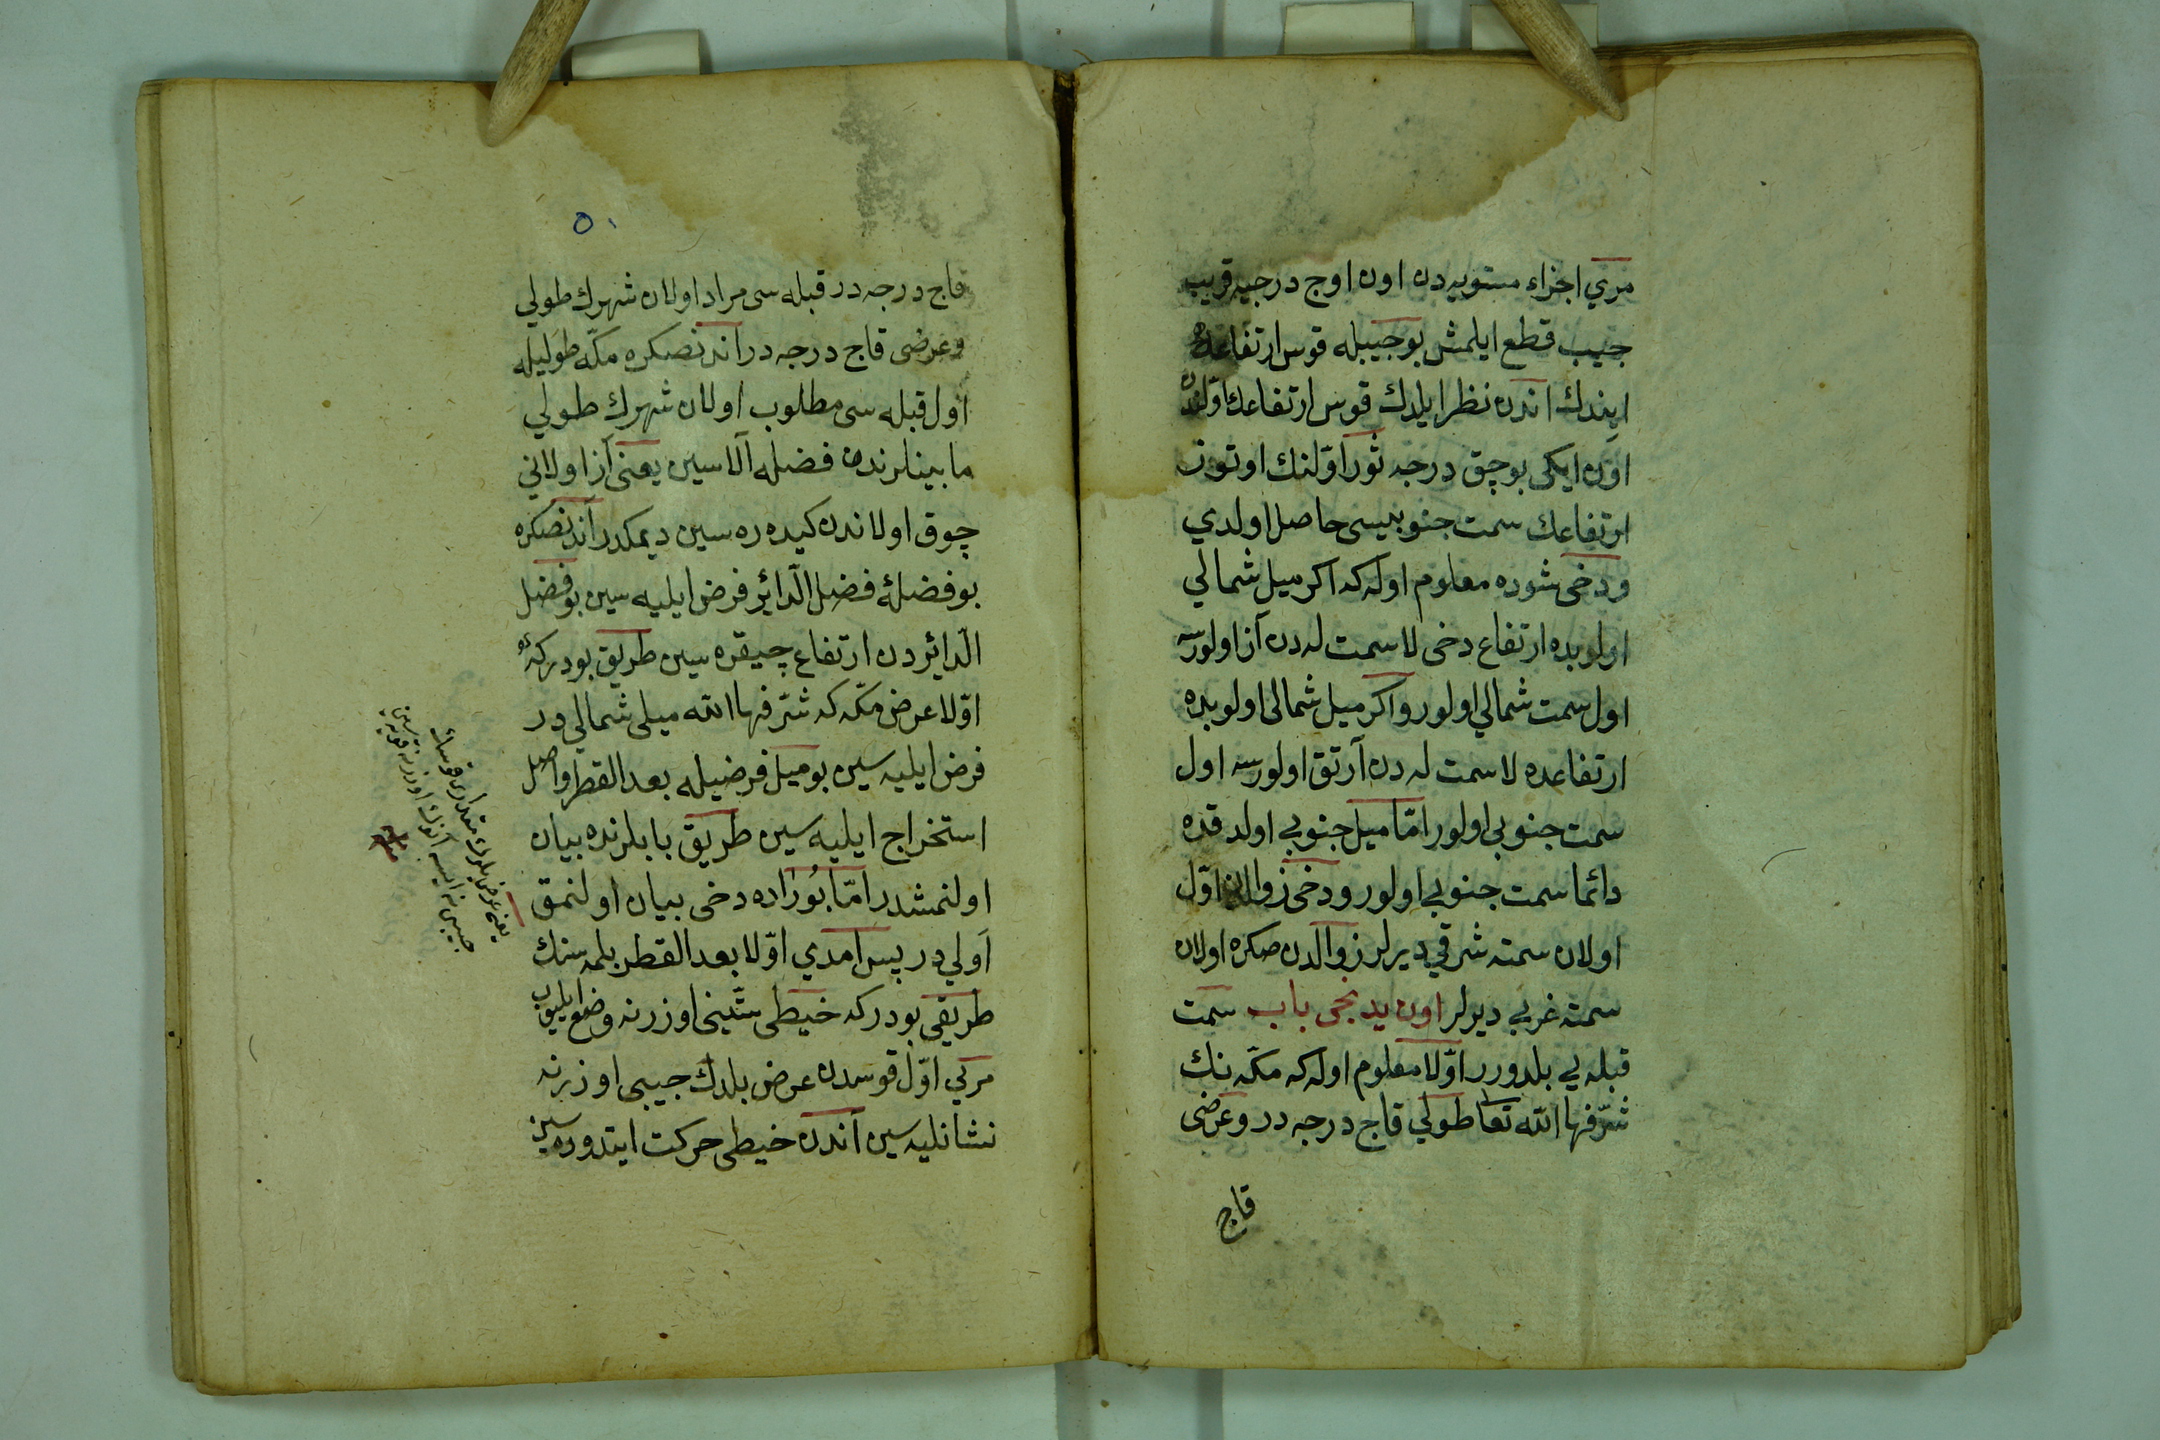 مري اجزاء مستويه دن اون اوج درجيه قريب
جيب قطع ايلمش بو جيبله قوس ارتفاعده
ايندك اندن نظر ايلدك قوس ارتفاعك اوّلندن
اون ايكى بوچق درجه ثور اوّلنك اوتوز
ارتفاعك سمت جنوبيسى حاصل اولدي
ودخى شوره معلوم اوله كه اكر ميل شمالي
اولوبده ارتفاع دخى لاسمت له دن آز اولورسه
اول سمت شمالي اولور واكر ميل شمالى اولوبده
ارتفاعده لاسمت له دن آرتق اولورسه اول
سمت جنوبى اولور امّا ميل جنوبي اولدقده
دائما سمت جنوبي اولور ودخى زوالدن اوّل
اولان سمته شرقي ديرلر زوالدن صكره اولان
سمته غربي ديرلر اون يدنجى باب سمت
قبله يي بلدورر اوّلا معلوم اوله كه مكّه نك
شرّفها الله تعا طولي قاج درجه در وعرضى
قاج
٥٠
قاج درجه در قبله سى مراد اولان شهرك طولي
وعرضى قاج درجه در اندنصكره مكّه طوليله
اول قبله سى مطلوب اولان شهرك طولي
مابينلرندن فضله آلاسين يعنى آز اولاني
چوق اولاندن كيده ره سين ديمكدر اندنصكره
بو فضلهٔ فضل الدّائر فرض ايليه سين بو فضل
الدّائردن ارتفاع چيقره سين طريق بودركه
اوّلا عرض مكّه كه شرّفها الله ميلى شمالي در
فرض ايليه سين بو ميل فرضيله بعد القطر واصل
استخراج ايليه سين طريق بابلرنده بيان
اولنمشدر امّا بوراده دخى بيان اولنمق
اولي در پس امدي اوّلا بعد القطر بلمه سنك
طريقى بودركه خيطى ستّينى اوزرنه وضع ايليوب
مريي اوّل قوسدن عرض بلدك جيبى اوزرنه
نشانليه سين اندن خيطى حركت ايتدوره سين
يعنى عرض بلدك مقدارى قوسك
جيبى نه ايسه آنوك اوزرنه قويه سين